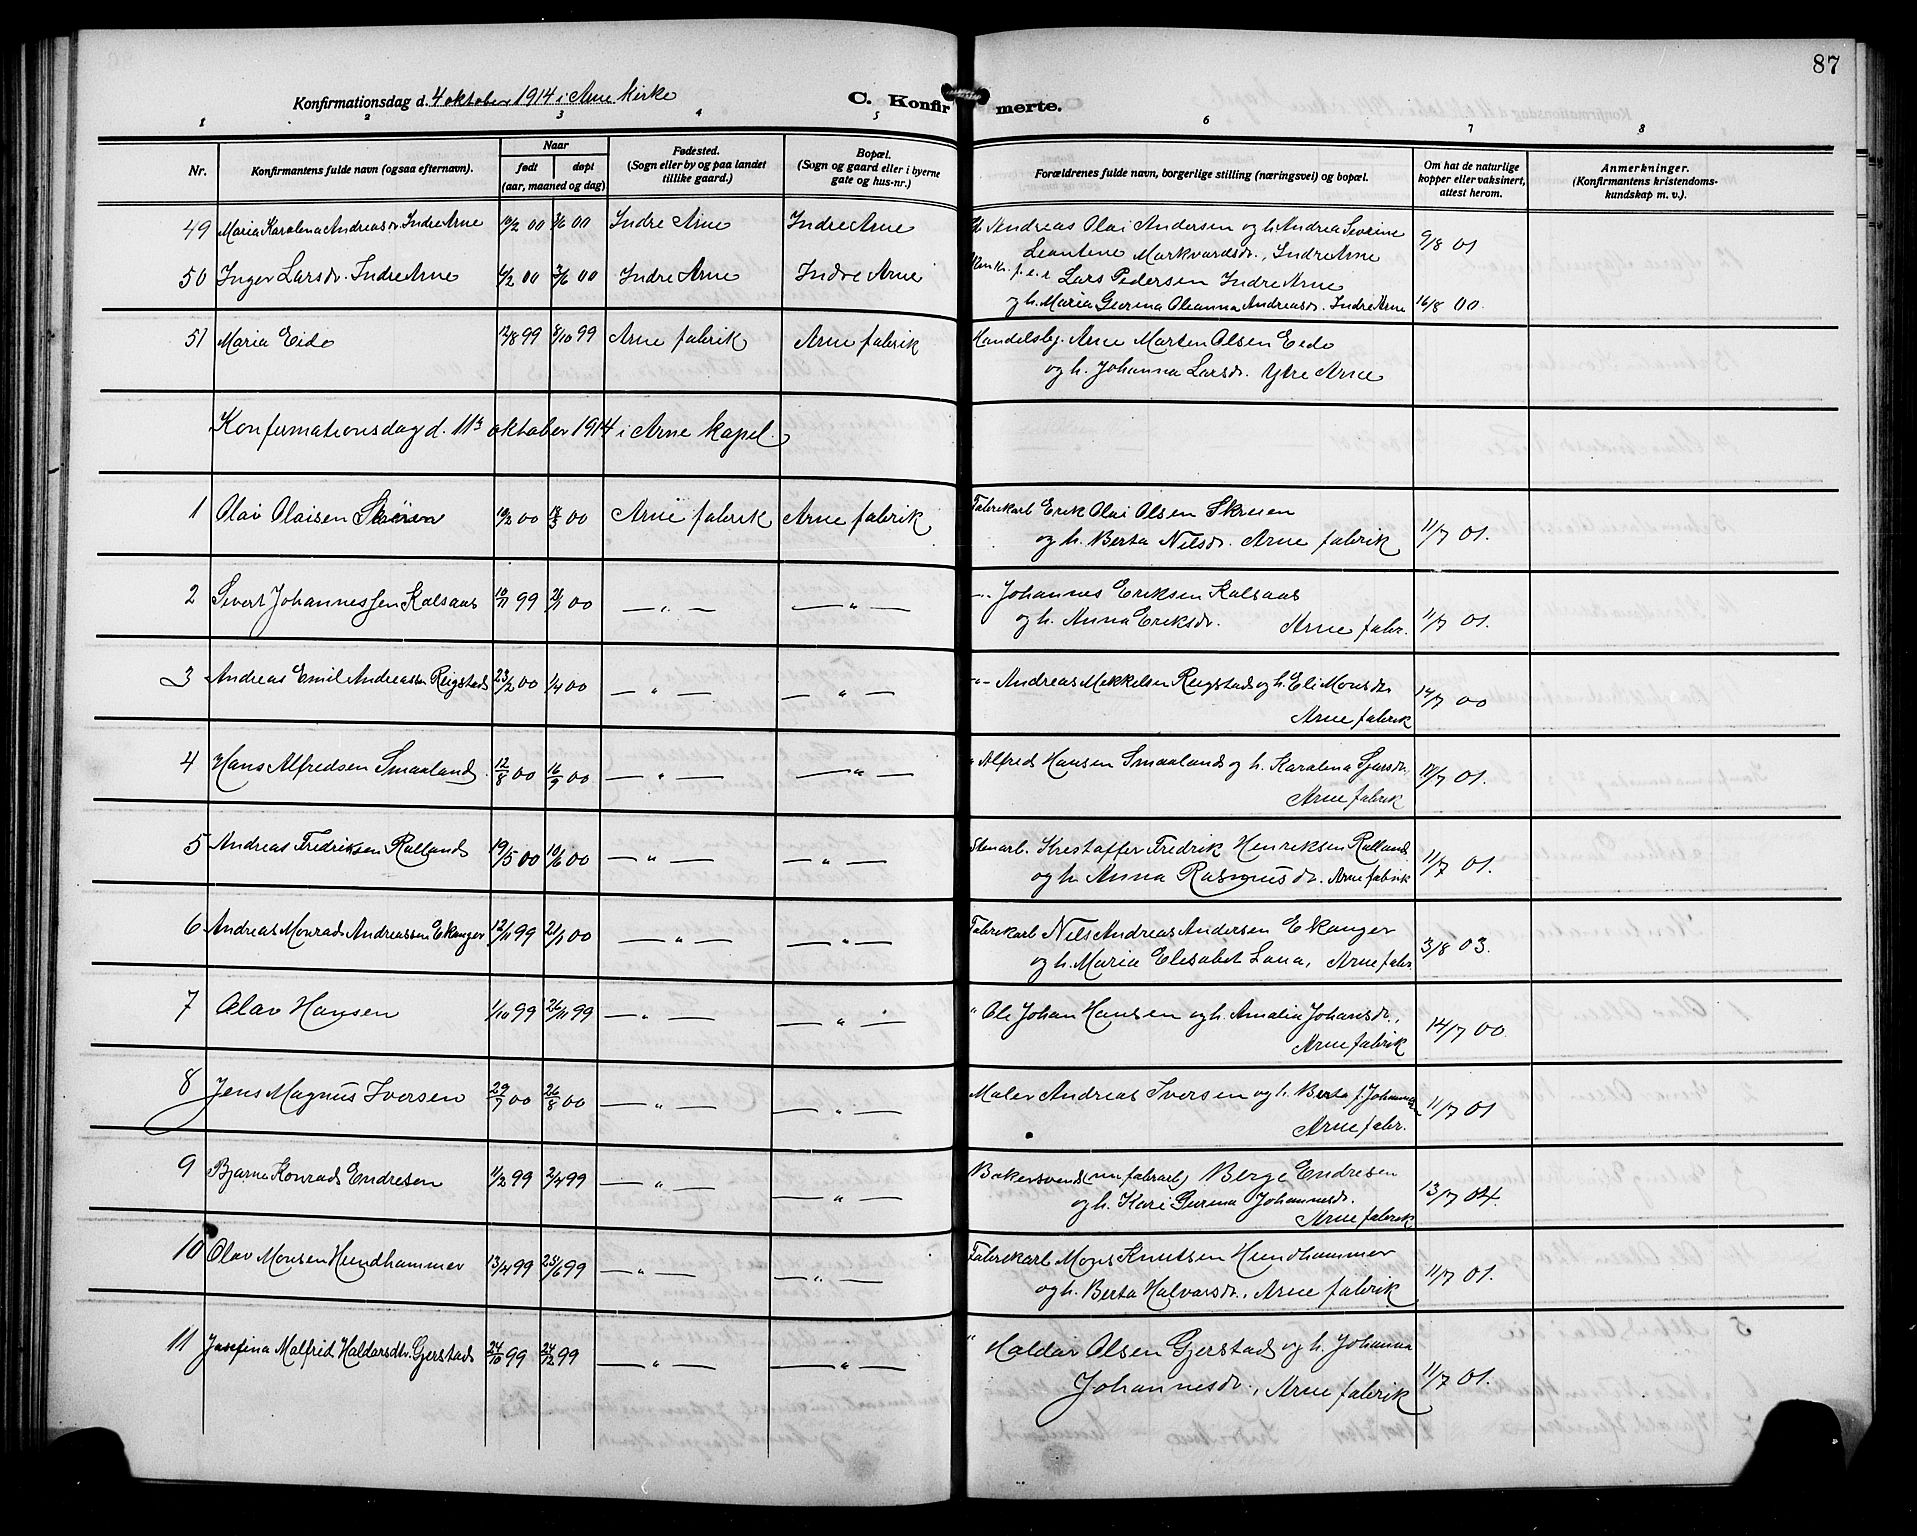 87
Konfirmationsdag d. 4 oktober 1914 i Arne kirke
C. Konfirmerte.
1 2 3 4 5 6 7 8
Nr.
Konfirmantens fulde navn (ogsaa efternavn).
Naar
født døpt
(aar, maaned og dag)
Fødested.
(Sogn eller by og paa landet
tillike gaard.)
Bopæl.
(Sogn og gaard eller i byerne
gate og hus-nr.)
Forældrenes fulde navn, borgerlige stilling (næringsvei) og bopæl.
Om hat de naturlige
kopper eller vaksinert,
attest herom.
Anmerkninger.
(Konfirmantens kristendoms-
kundskap m. v.).
49 Maria Karolena Andreasdr. Indre Arne 00 3/6 00 Indre Arne Indre Arne Andreas Olai Andersen og h. Andrea Severine 9/8 01
Leantene Markvardsdr., Indre Arne
50 Inger Larsdr. Indre Arne 4/2 00 3/6 00 Indre Arne Indre Arne Lars Pedersen Indre Arne
og h. Maria Gurina Oleanna Andreasdr. Indre Arne 16/8 00.
51 Maria Eide 12/8 99 8/10 99 Arne fabrik Arne fabrik Handelsbj. Arne Marten Olsen Eide
og h. Johanna Larsdr. Ytre Arne
Konfirmationsdag d. 11 oktober 1914 i Arne kapel.
1 Olav Olaisen 00 00 Arne fabrik Arne fabrik Fabrikarb Erik Olai Olsen Skruen
og h. Berta Nilsdr. Arne fabrik 11/7 01.
2 Sivert Johannessen Kalsaas 10/11 99 21/1 00 — " — — " — — " — Johannes Eriksen Kalsaas
og h. Anna Eriksdr. Arne fabr. 11/7 01.
3 Andreas Emil Andreassen Reigstad 23/2 00 1/4 00 — " — — " — — " — Andreas Mikkelsen Reigstad og h. Eli Monsdr. 14/7 00
Arne fabrik
4 Hans Alfredsen Smaaland 12/8 00 16/9 00 — " — — " — " Alfred Hansen Smaaland og h. Karolina 11/7 01.
Arne fabrik
5 Andreas Fredriksen Rolland 19/5 00 10/6 00 — " — — " — Stenarb. Kristoffer Fredrik Henriksen Rolland
og h. Anna Rasmusdr. Arne fabrik 11/7 01.
6 Andreas Monrad Andreassen Ekanger 12/11 99 21/1 00 — " — — " — Fabrikarb Nils Andreas Andersen Ekanger
og h. Maria Elisabet Lana, Arne fabr. 3/8 03.
7 Olav Hansen 1/10 99 26/11 99 — " — — " — " Ole Johan Hansen og h. Amalia Johansdr., 14/7 00.
Arne fabrik
8 Jens Magnus Iversen 29/7 00 26/8 00 — " — — " — Maler Andreas Iversen og h. Berta f. 11/7 01
Arne fabr.
9 Bjarne Konrad Endresen 11/2 99 2/4 99 — " — — " — Bakersvend (nu fabrarb) Berge Endresen
og h. Kari Gurina Johannesdr. 13/7 04.
Arne fabrik
10 Olav Monsen Hundhammer 13/4 99 25/6 99 — " — — " — Fabrikarb Mons Knutsen Hundhammer
og h. Berta Halvarsdr., Arne fabrik 11/7 01.
11 Josefina Malfrid Haldorsdtr. Gjerstad 24/10 99 24/12 99 — " — — " — " Haldor Olsen Gjerstad og h. Johanna
Johannesdr., Arne fabrik 11/7 01.